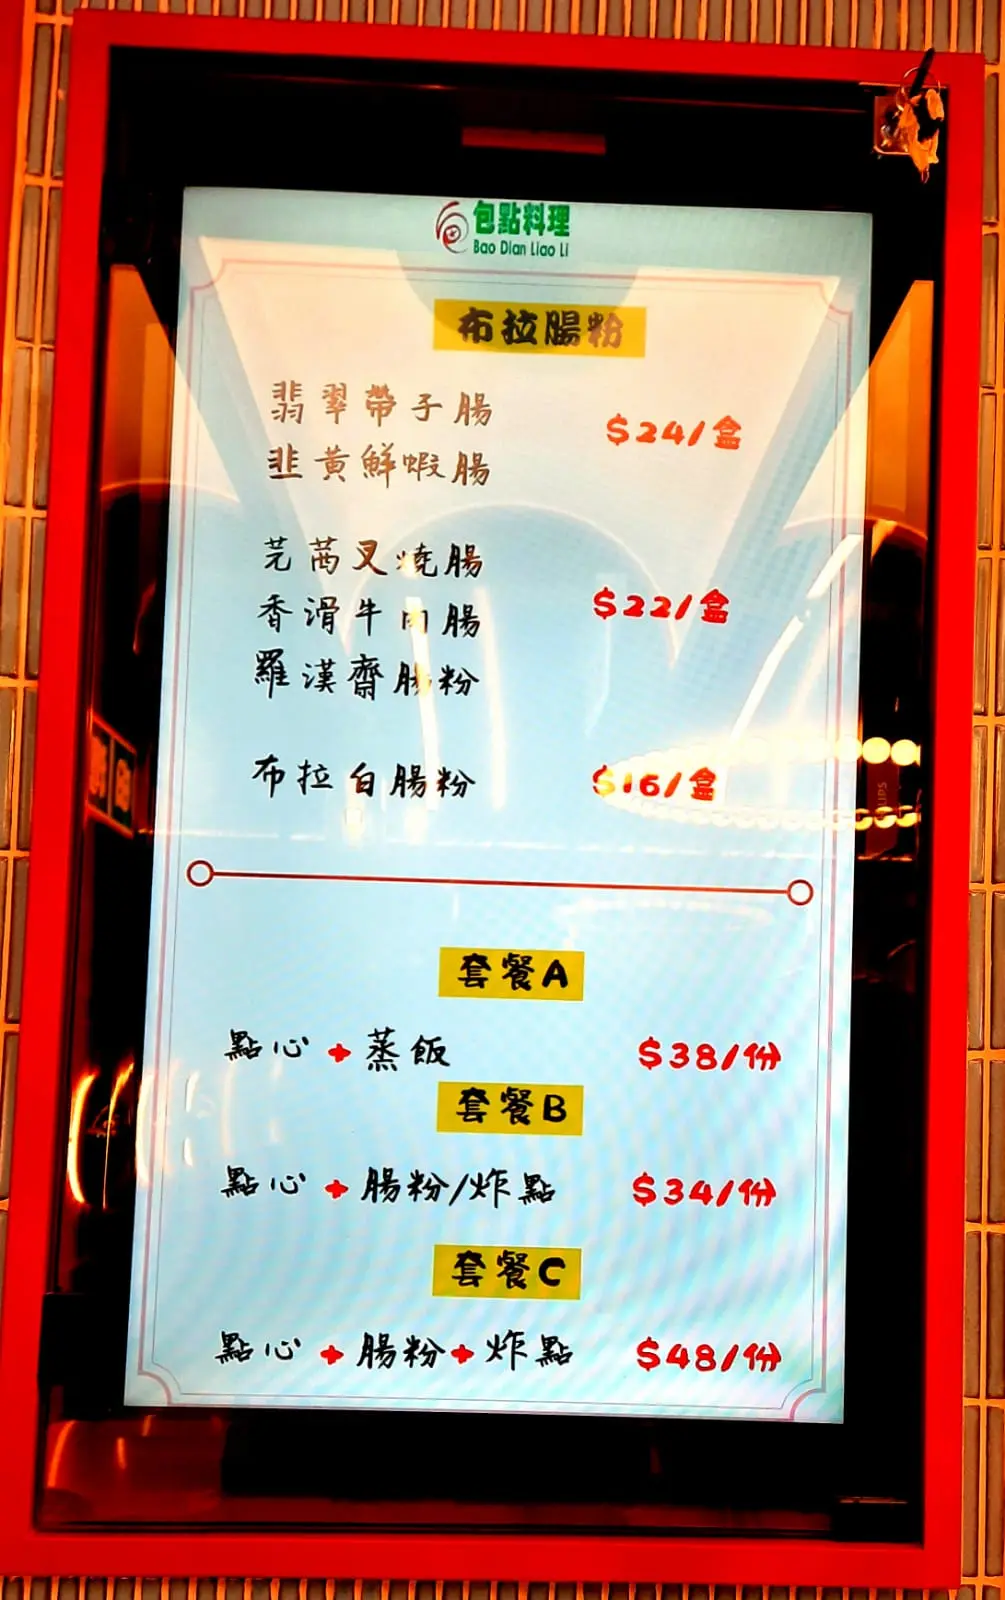 包點料理
Bao Dian Liao Li
布拉腸粉
翡翠帶子腸
韭黃鮮蝦腸
$24/盒
芫茜叉燒腸
香滑牛肉腸
羅漢齋腸粉
$22/盒
布拉白腸粉 $16/盒
套餐A
點心+蒸飯 $38/份
套餐B
點心+腸粉/炸點 $34/份
套餐C
點心+腸粉+炸點 $48/份